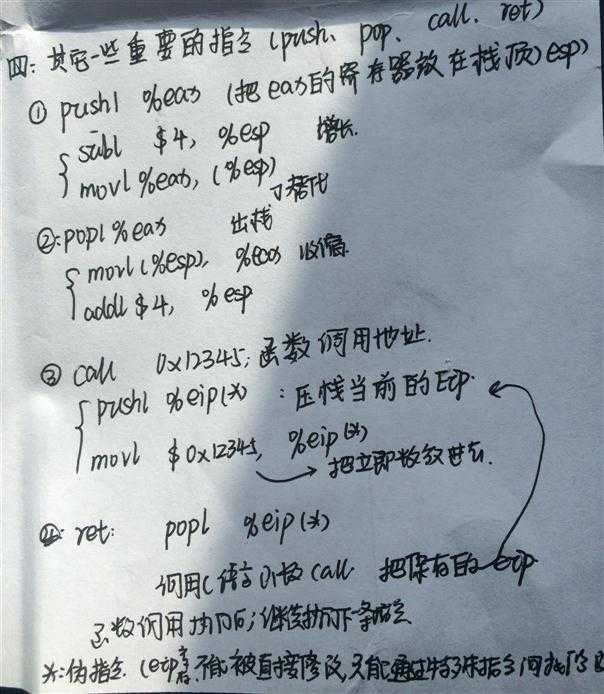 四: 其它一些重要的指令 (push、pop、call、ret)
① pushl %eax (把eax的寄存器放在栈顶)esp)
subl $4, %esp 增长.
movl %eax, (%esp)
替代
②: popl %eax 出栈
movl (%esp), %eax 收缩
addl $4, %esp
③ call 0x12345; 函数调用地址.
pushl %eip(*) : 压栈当前的Eip.
movl $0x12345, %eip(*)
把立即数放进去.
④: ret: popl %eip(*)
call 把保存的eip
函数调用执行后; 继续执行下一条指令
*: 伪指令. (eip 不能被直接修改, 只能通过特殊指令间接修改